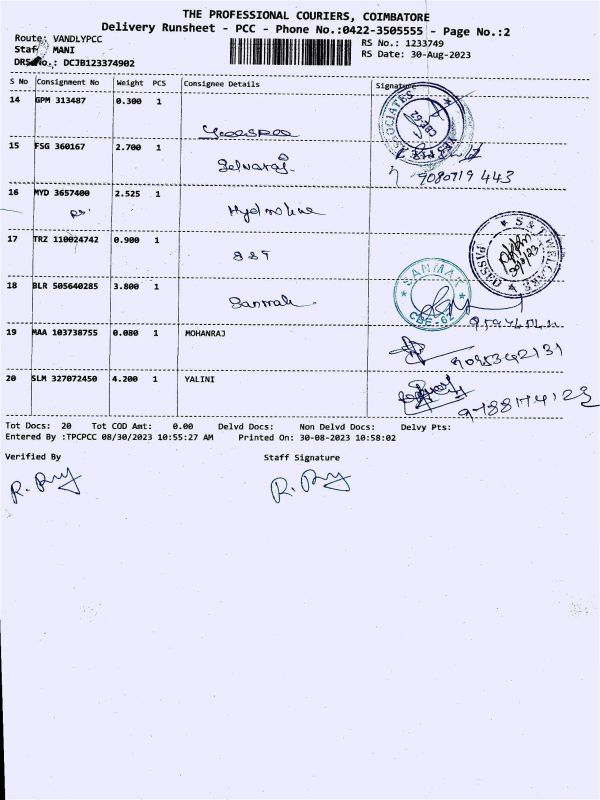 THE PROFESSIONAL COURIERS, COIMBATORE
Delivery Runsheet - PCC - Phone No.:0422-3505555 - Page No.:2
Route: VANDLYPCC
RS No.: 1233749
Staf MANI
RS Date: 30-Aug-2023
DRS No.: DCJB123374902
S No Consignment No Weight PCS Consignee Details Signature
14 GPM 313487 0.300 1
ASSOCIATES CBE-62
15 FSG 360167 2.700 1 Selvaraj
9080719 443
16 MYD 3657400 2.525 1 Hydroline
17 TRZ 110024742 0.900 1 S&T
S & T WELCARE
18 BLR 505640285 3.800 1 Sanmak
SANMAK CBE-62
19 MAA 103738755 0.080 1 MOHANRAJ
9095342131
20 SLM 327072450 4.200 1 YALINI
9788174123
Tot Docs: 20 Tot COD Amt: 0.00 Delvd Docs: Non Delvd Docs: Delvy Pts:
Entered By :TPCPCC 08/30/2023 10:55:27 AM Printed On: 30-08-2023 10:58:02
Verified By Staff Signature